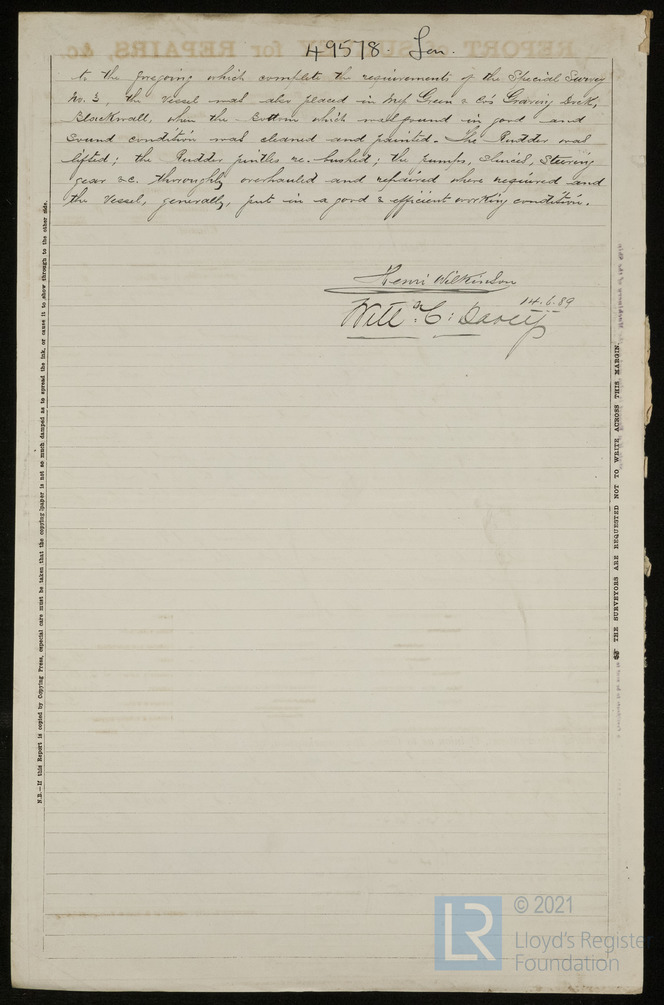 49578. Lon.
to the foregoing which complete the requirements of the Special Survey
No. 3, the Vessel was also placed in Mess Green & Co's Graving Dock,
Blackwall, when the Bottom which was found in good and
Sound condition was cleaned and painted. The Rudder was
lifted; the Rudder pintles re-bushed; the pumps, Sluices, Steering
gear &c. thoroughly overhauled and repaired where required and
the Vessel, generally, put in a good & efficient working condition.
Henri Wilkinson
14.6.89
Will m C: Davey
N.B.—If this Report is copied by Copying Press, especial care must be taken that the copying paper is not so much damped as to spread the ink, or cause it to show through to the other side.
THE SURVEYORS ARE REQUESTED NOT TO WRITE ACROSS THIS MARGIN.
LR
© 2021
Lloyd's Register
Foundation